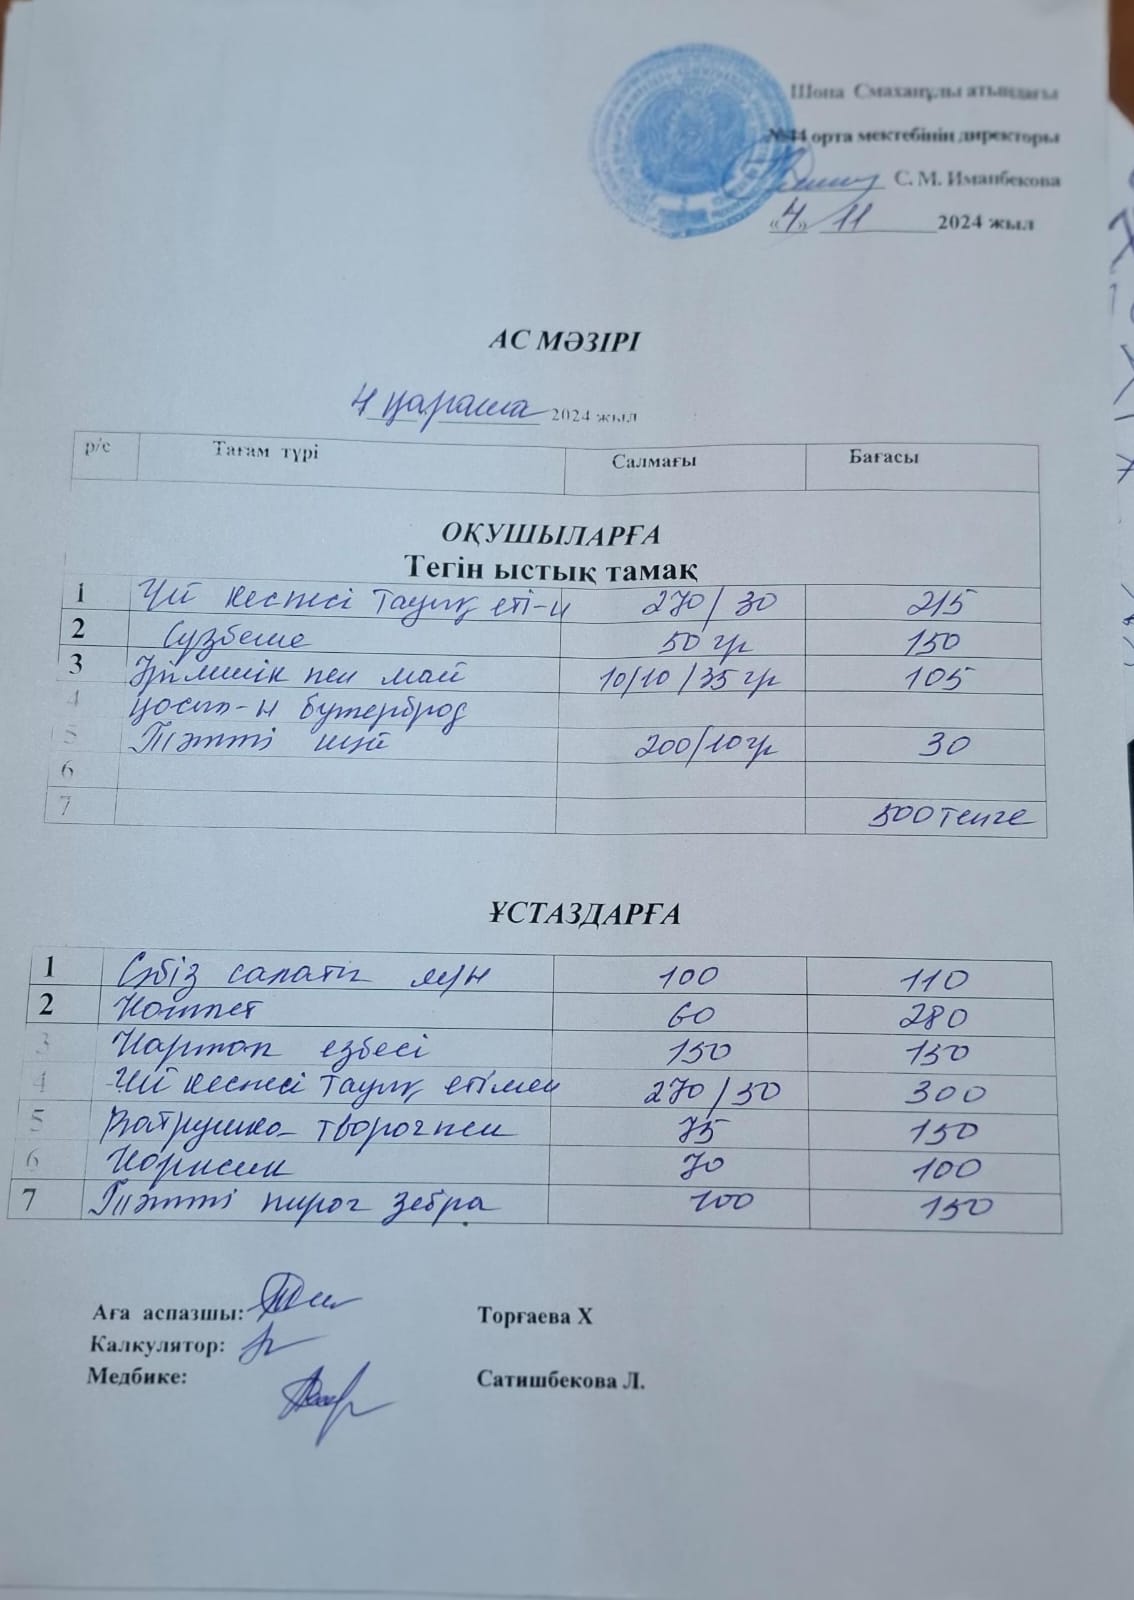 Шона Смаханұлы атындағы
№44 орта мектебінің директоры
С. М. Иманбекова
«4» 11 2024 жыл
АС МӘЗІРІ
4 қараша 2024 жыл
р/с Тағам түрі Салмағы Бағасы
ОҚУШЫЛАРҒА
Тегін ыстық тамақ
1 Үй кеспесі тауық еті-н 270/30 215
2 Сүзбеше 50 гр 150
3 Ірімшік пен май 10/10/35 гр 105
4 қосып-н бутерброд
5 Тәтті шәй 200/10 гр 30
6
7 500 теңге
ҰСТАЗДАРҒА
1 Сәбіз салаты 100 110
2 Котлет 60 280
3 Картоп езбесі 150 150
4 Үй кеспесі тауық етімен 270/30 300
5 Ватрушка творогпен 75 150
6 70 100
7 Тәтті пирог зебра 100 150
Аға аспазшы: Торғаева Х
Калкулятор:
Медбике: Сатишбекова Л.